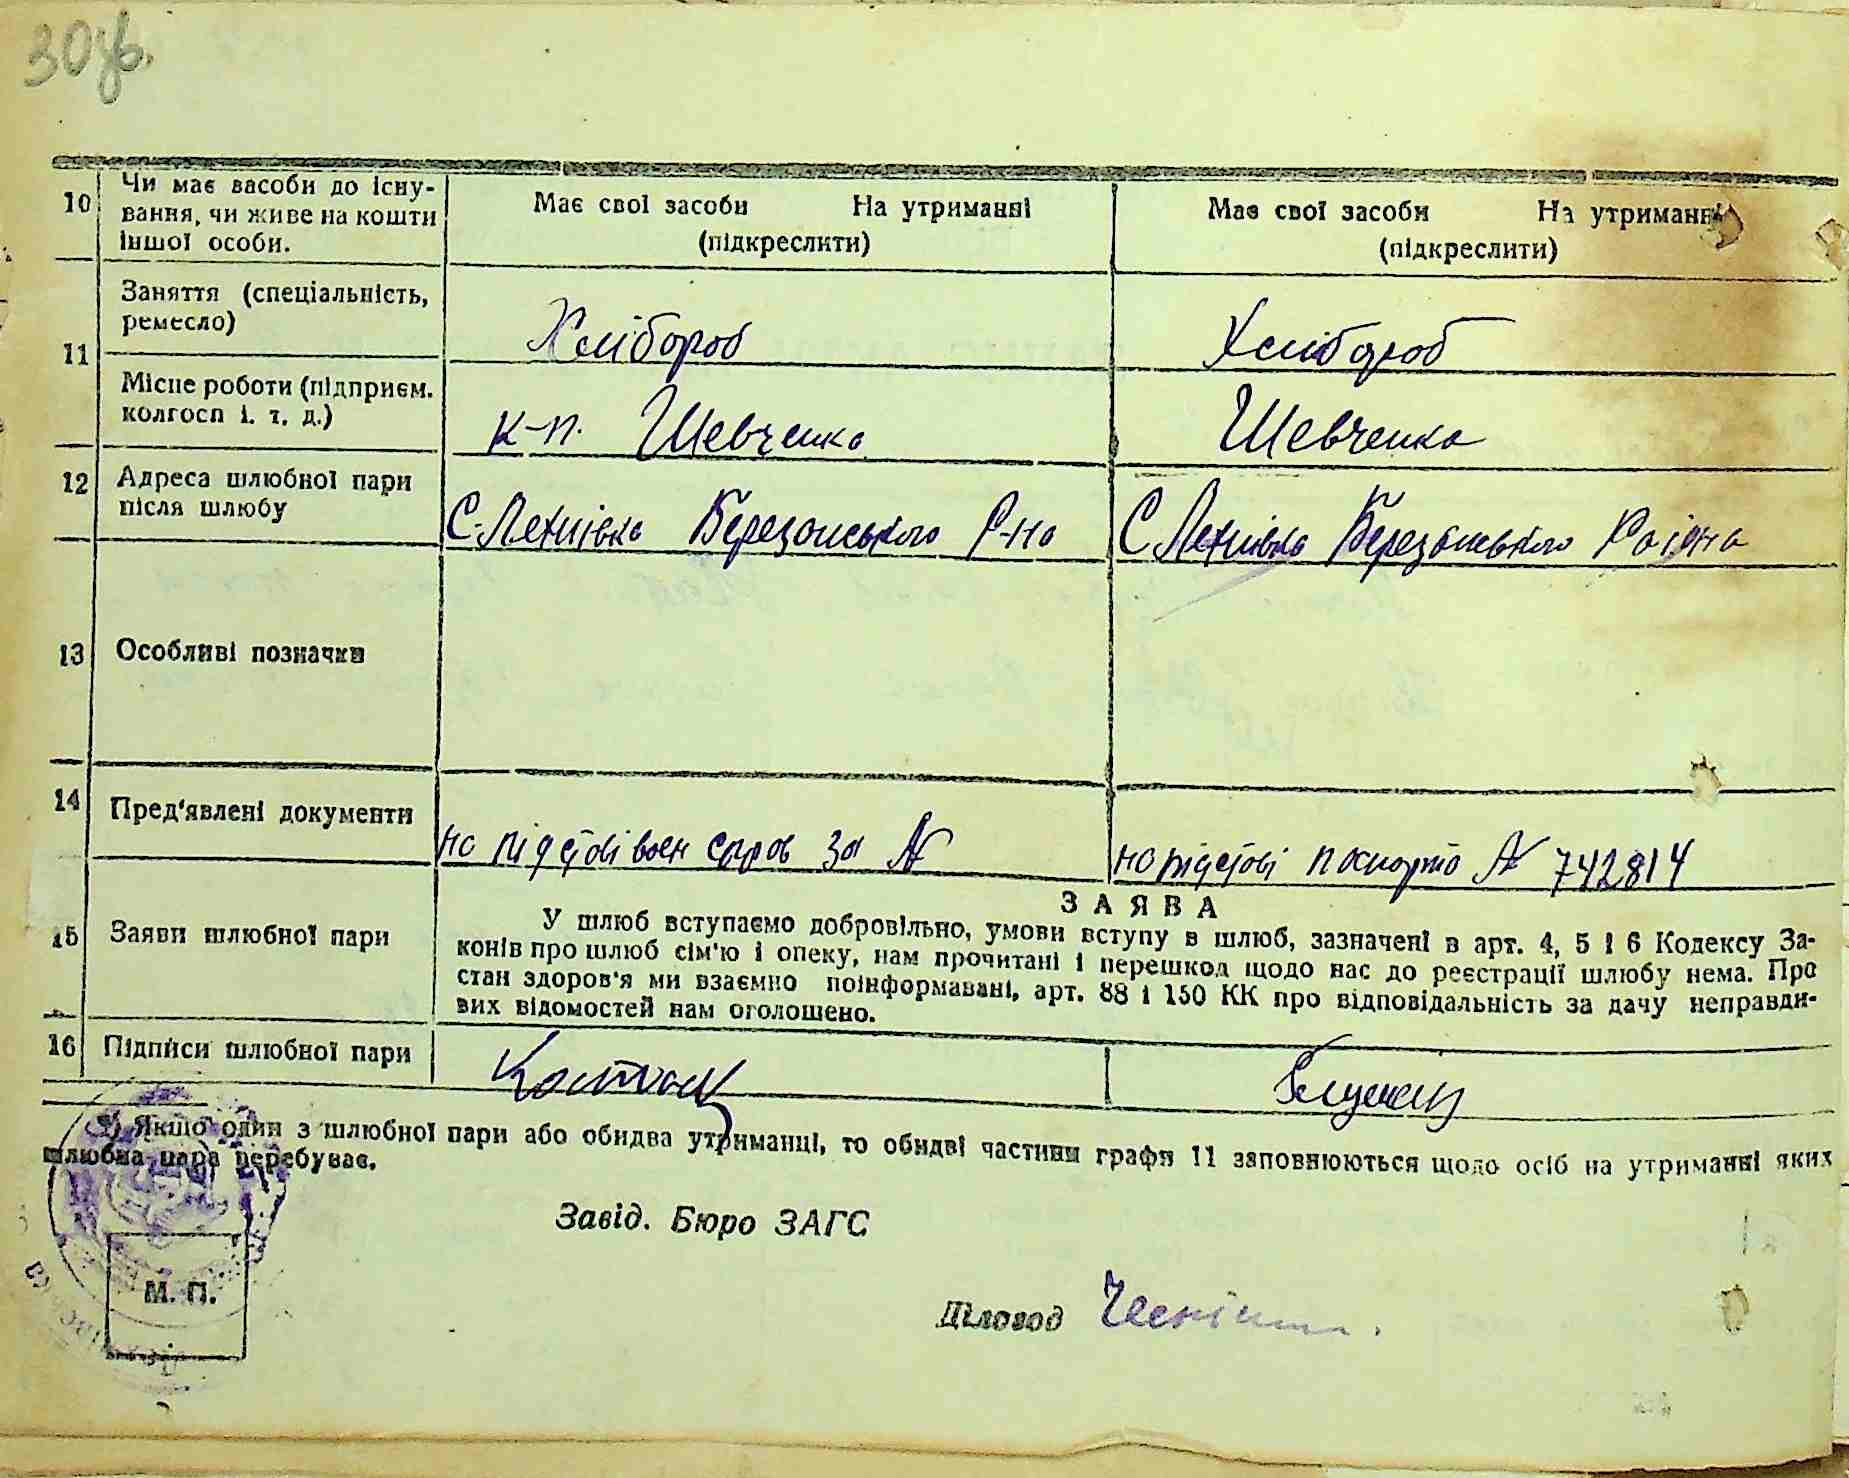 30 зв.
10 Чи має засоби до існу-
вання, чи живе на кошти
іншої особи.
Має свої засоби На утриманні
(підкреслити)
Має свої засоби На утриманні
(підкреслити)
11
Заняття (спеціальність,
ремесло)
Хлібороб
Хлібороб
Місце роботи (підприєм.
колгосп і. т. д.)
к-п. Шевченка
Шевченка
12 Адреса шлюбної пари
після шлюбу
С. Лехнівка Березанського Р-на
С Лехнівка Березанського Району
13 Особливі позначки
14 Пред'явлені документи
на підставі воєн справ за №
на підставі паспорта № 742814
15 Заяви шлюбної пари
ЗАЯВА
У шлюб вступаємо добровільно, умови вступу в шлюб, зазначені в арт. 4, 5 і 6 Кодексу За-
конів про шлюб сім'ю і опеку, нам прочитані і перешкод щодо нас до реєстрації шлюбу нема. Про
стан здоров'я ми взаємно поінформавані, арт. 88 і 150 КК про відповідальність за дачу неправди-
вих відомостей нам оголошено.
16 Підписи шлюбної пари
*) Якщо один з шлюбної пари або обидва утриманці, то обидві частини графи 11 заповнюються щодо осіб на утриманні яких
шлюбна пара перебуває.
Завід. Бюро ЗАГС
М. П.
Діловод